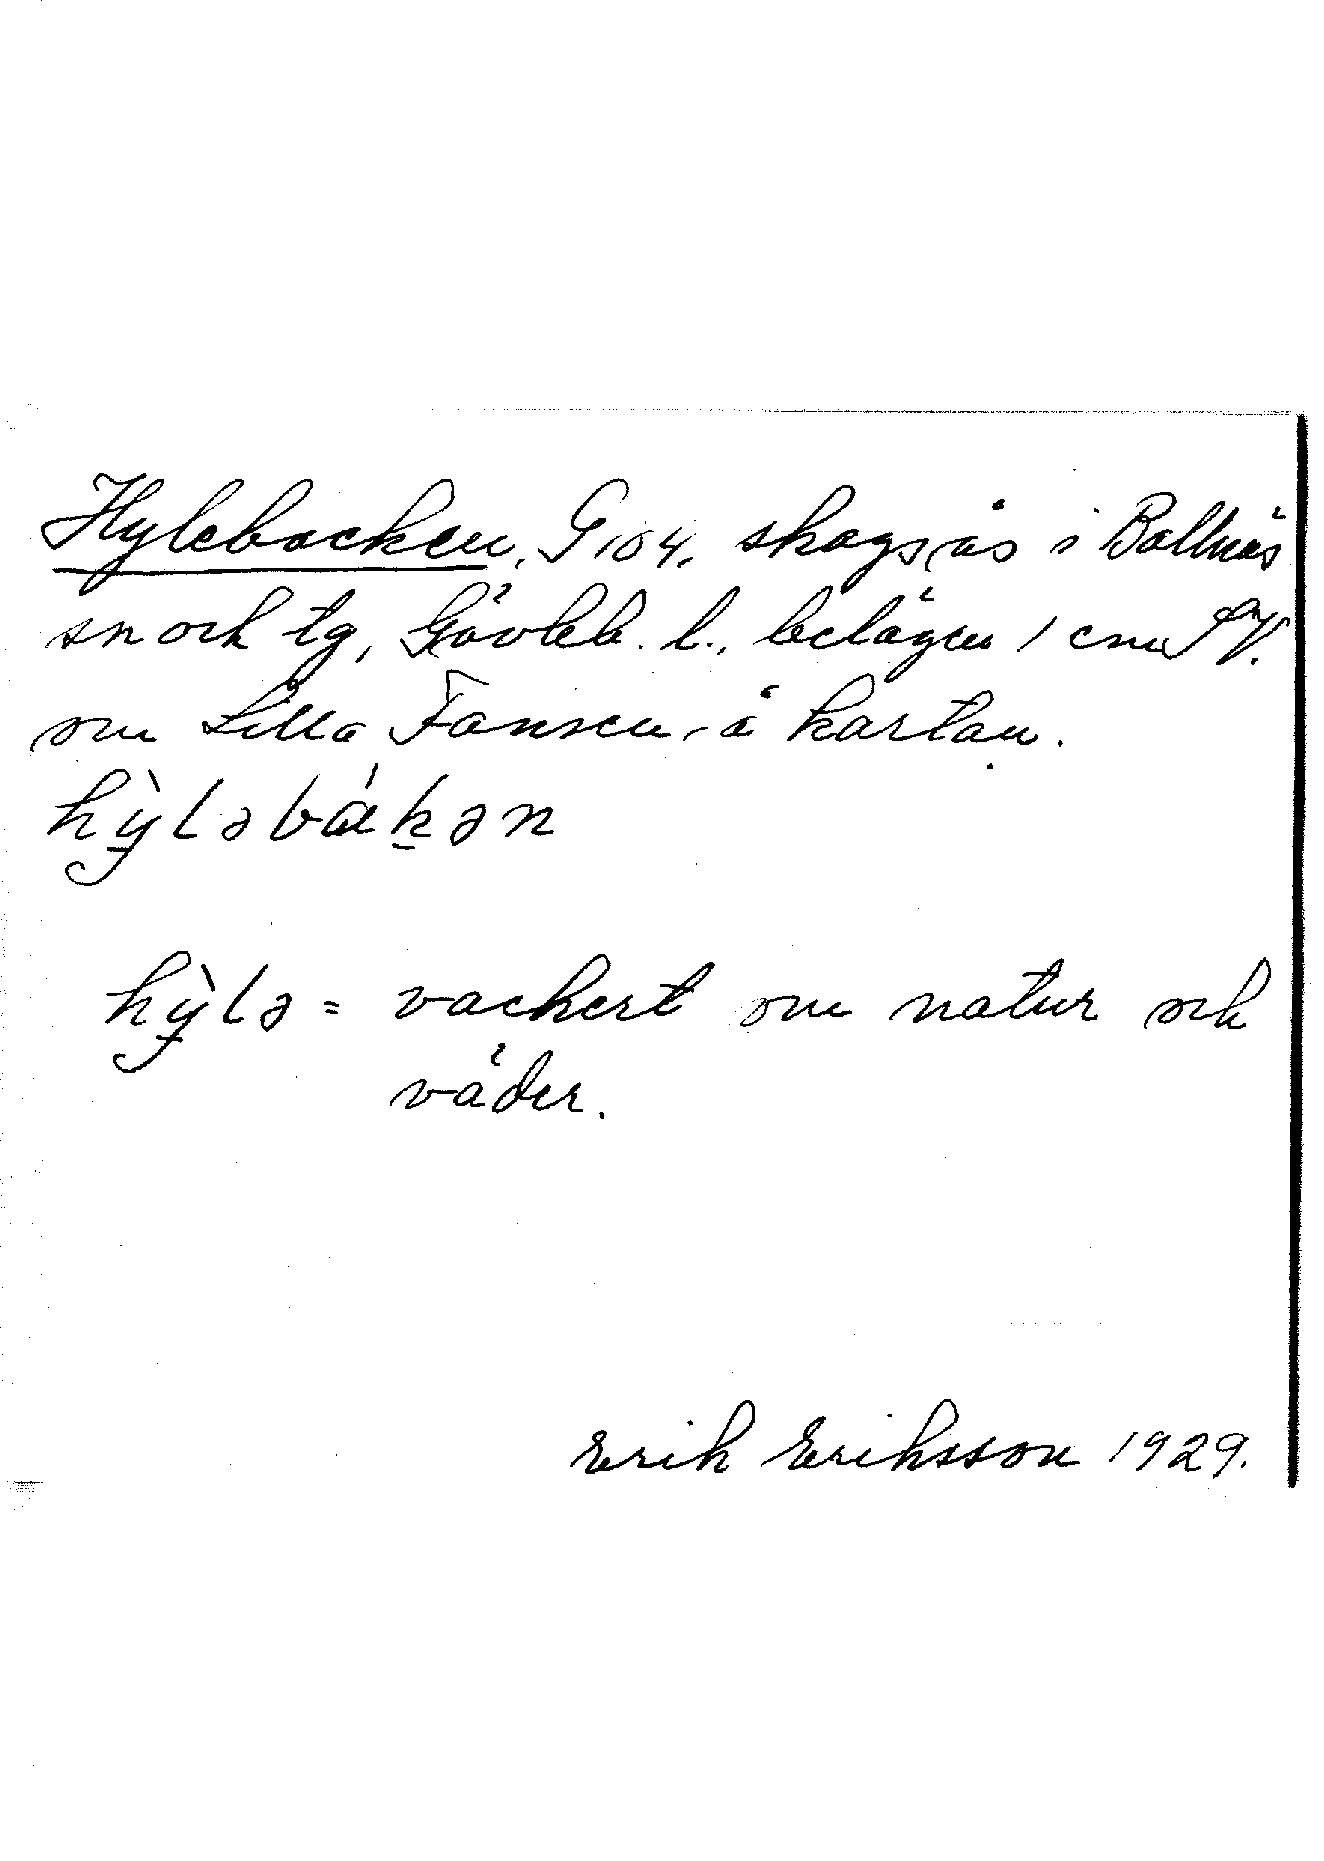 Hylebacken, G 104, skogsås i Bollnäs
sn och tg, Gävleb. l., belägen 1 cm SV.
om Lilla Fansen å kartan.
hỳləbákən
hỳlə = vackert om natur och
väder.
Erik Eriksson 1929.